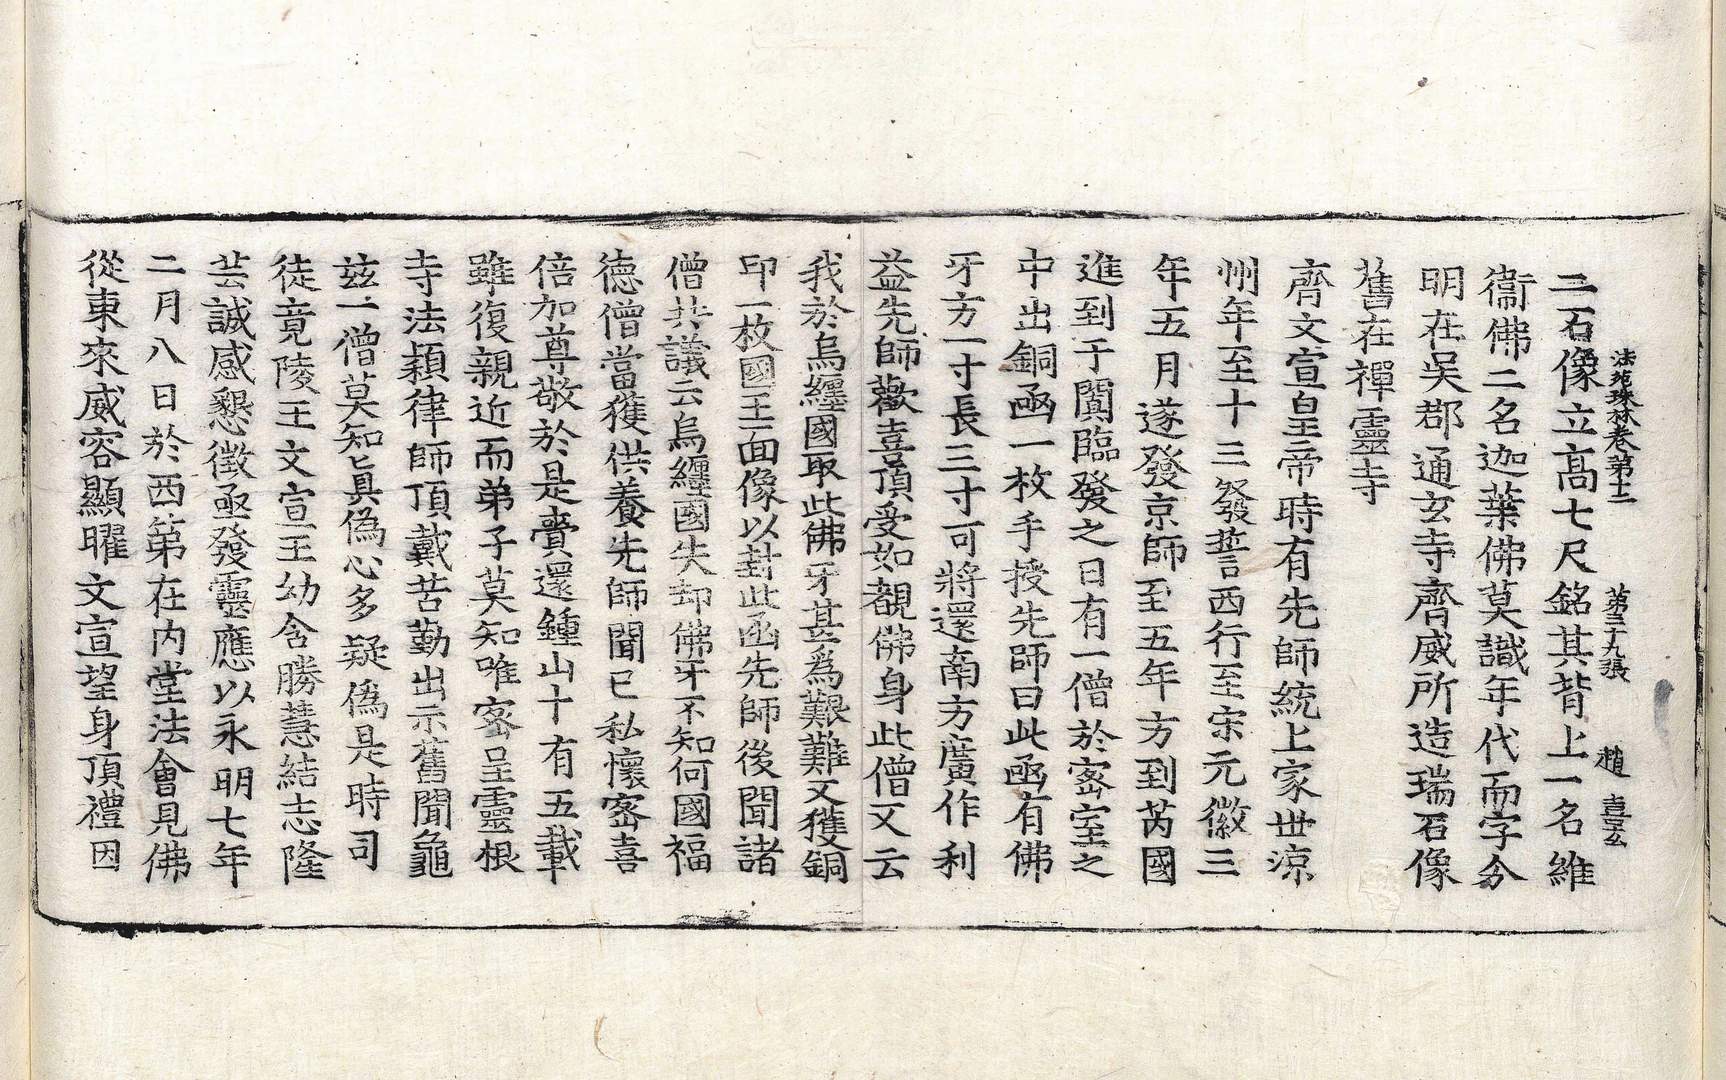 法苑珠林卷第十二 第三十九張 趙 直玄
二石像立高七尺銘其背上一名維
衞佛二名迦葉佛莫識年代而字分
明在吳郡通玄寺齊威所造瑞石像
舊在禪靈寺
齊文宣皇帝時有先師統上家世涼
州年至十三發誓西行至宋元徽三
年五月遂發京師至五年方到芮國
進到于闐臨發之日有一僧於密室之
中出銅函一枚手授先師曰此函有佛
牙方一寸長三寸可將還南方廣作利
益先師歡喜頂受如覩佛身此僧又云
我於烏纏國取此佛牙甚爲艱難又獲銅
印一枚國王面像以封此函先師後聞諸
僧共議云烏纏國失却佛牙不知何國福
德僧當獲供養先師聞已私懷密喜
倍加尊敬於是賷還鍾山十有五載
雖復親近而弟子莫知唯密呈靈根
寺法穎律師頂戴苦勤出示舊聞龜
茲一僧莫知眞僞心多疑僞是時司
徒竟陵王文宣王幼含勝慧結志隆
芸誠感懇徵亟發靈應以永明七年
二月八日於西第在內堂法會見佛
從東來威容顯曜文宣望身頂禮因